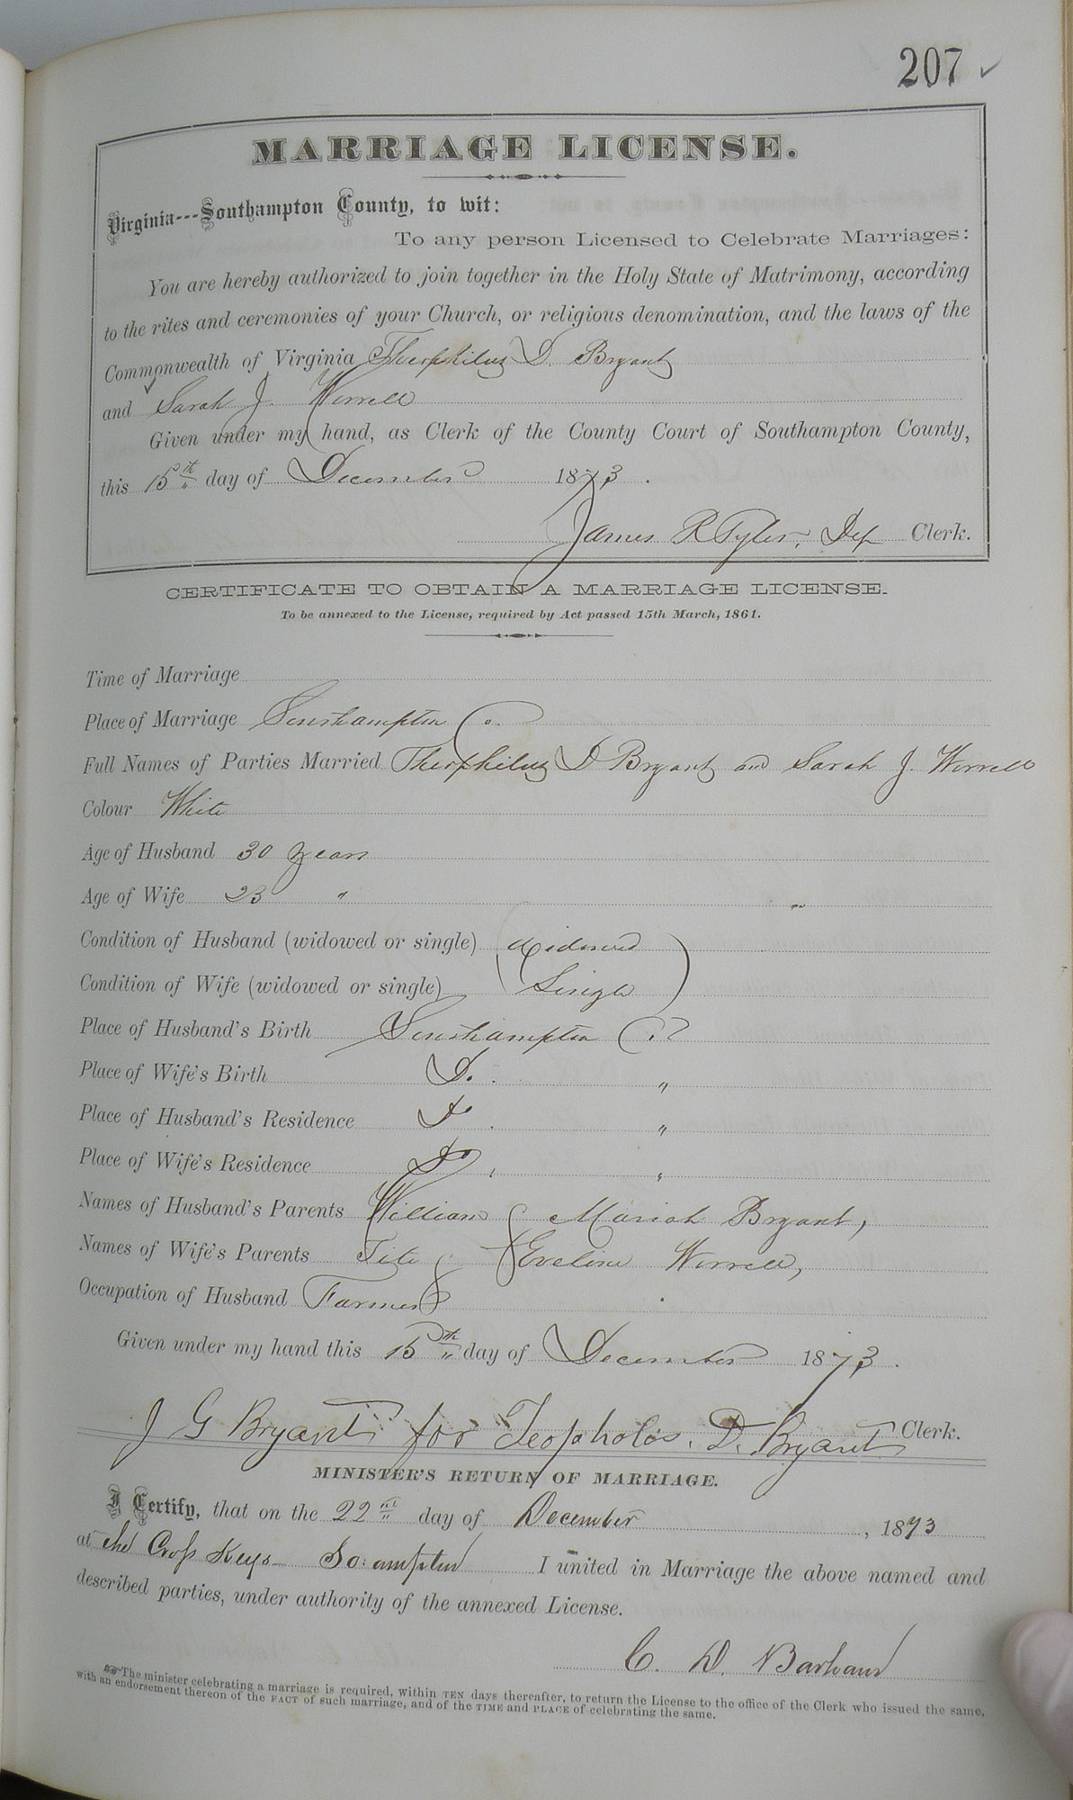 207 ✓
MARRIAGE LICENSE.
Virginia---Southampton County, to wit:
To any person Licensed to Celebrate Marriages:
You are hereby authorized to join together in the Holy State of Matrimony, according
to the rites and ceremonies of your Church, or religious denomination, and the laws of the
Commonwealth of Virginia Theophilus D. Bryant
and Sarah J. Worrell
Given under my hand, as Clerk of the County Court of Southampton County,
this 15th day of December 1873.
James R Tyler, Dep Clerk.
CERTIFICATE TO OBTAIN A MARRIAGE LICENSE.
To be annexed to the License, required by Act passed 15th March, 1861.
Time of Marriage
Place of Marriage Southampton Co.
Full Names of Parties Married Theophilus D Bryant and Sarah J. Worrell
Colour White
Age of Husband 30 years
Age of Wife 23 "
Condition of Husband (widowed or single) Widowed
Condition of Wife (widowed or single) Single
Place of Husband's Birth Southampton Co
Place of Wife's Birth Do. "
Place of Husband's Residence Do. "
Place of Wife's Residence Do. "
Names of Husband's Parents William & Mariah Bryant,
Names of Wife's Parents Tite & Eveline Worrell,
Occupation of Husband Farmer
Given under my hand this 15th day of December 1873.
J G Bryant for Teopholos. D. Bryant Clerk.
MINISTER'S RETURN OF MARRIAGE.
I Certify, that on the 22nd day of December, 1873
at the Cross Keys So:ampton I united in Marriage the above named and
described parties, under authority of the annexed License.
C. D. Barham
The minister celebrating a marriage is required, within TEN days thereafter, to return the License to the office of the Clerk who issued the same,
with an endorsement thereon of the FACT of such marriage, and of the TIME and PLACE of celebrating the same.